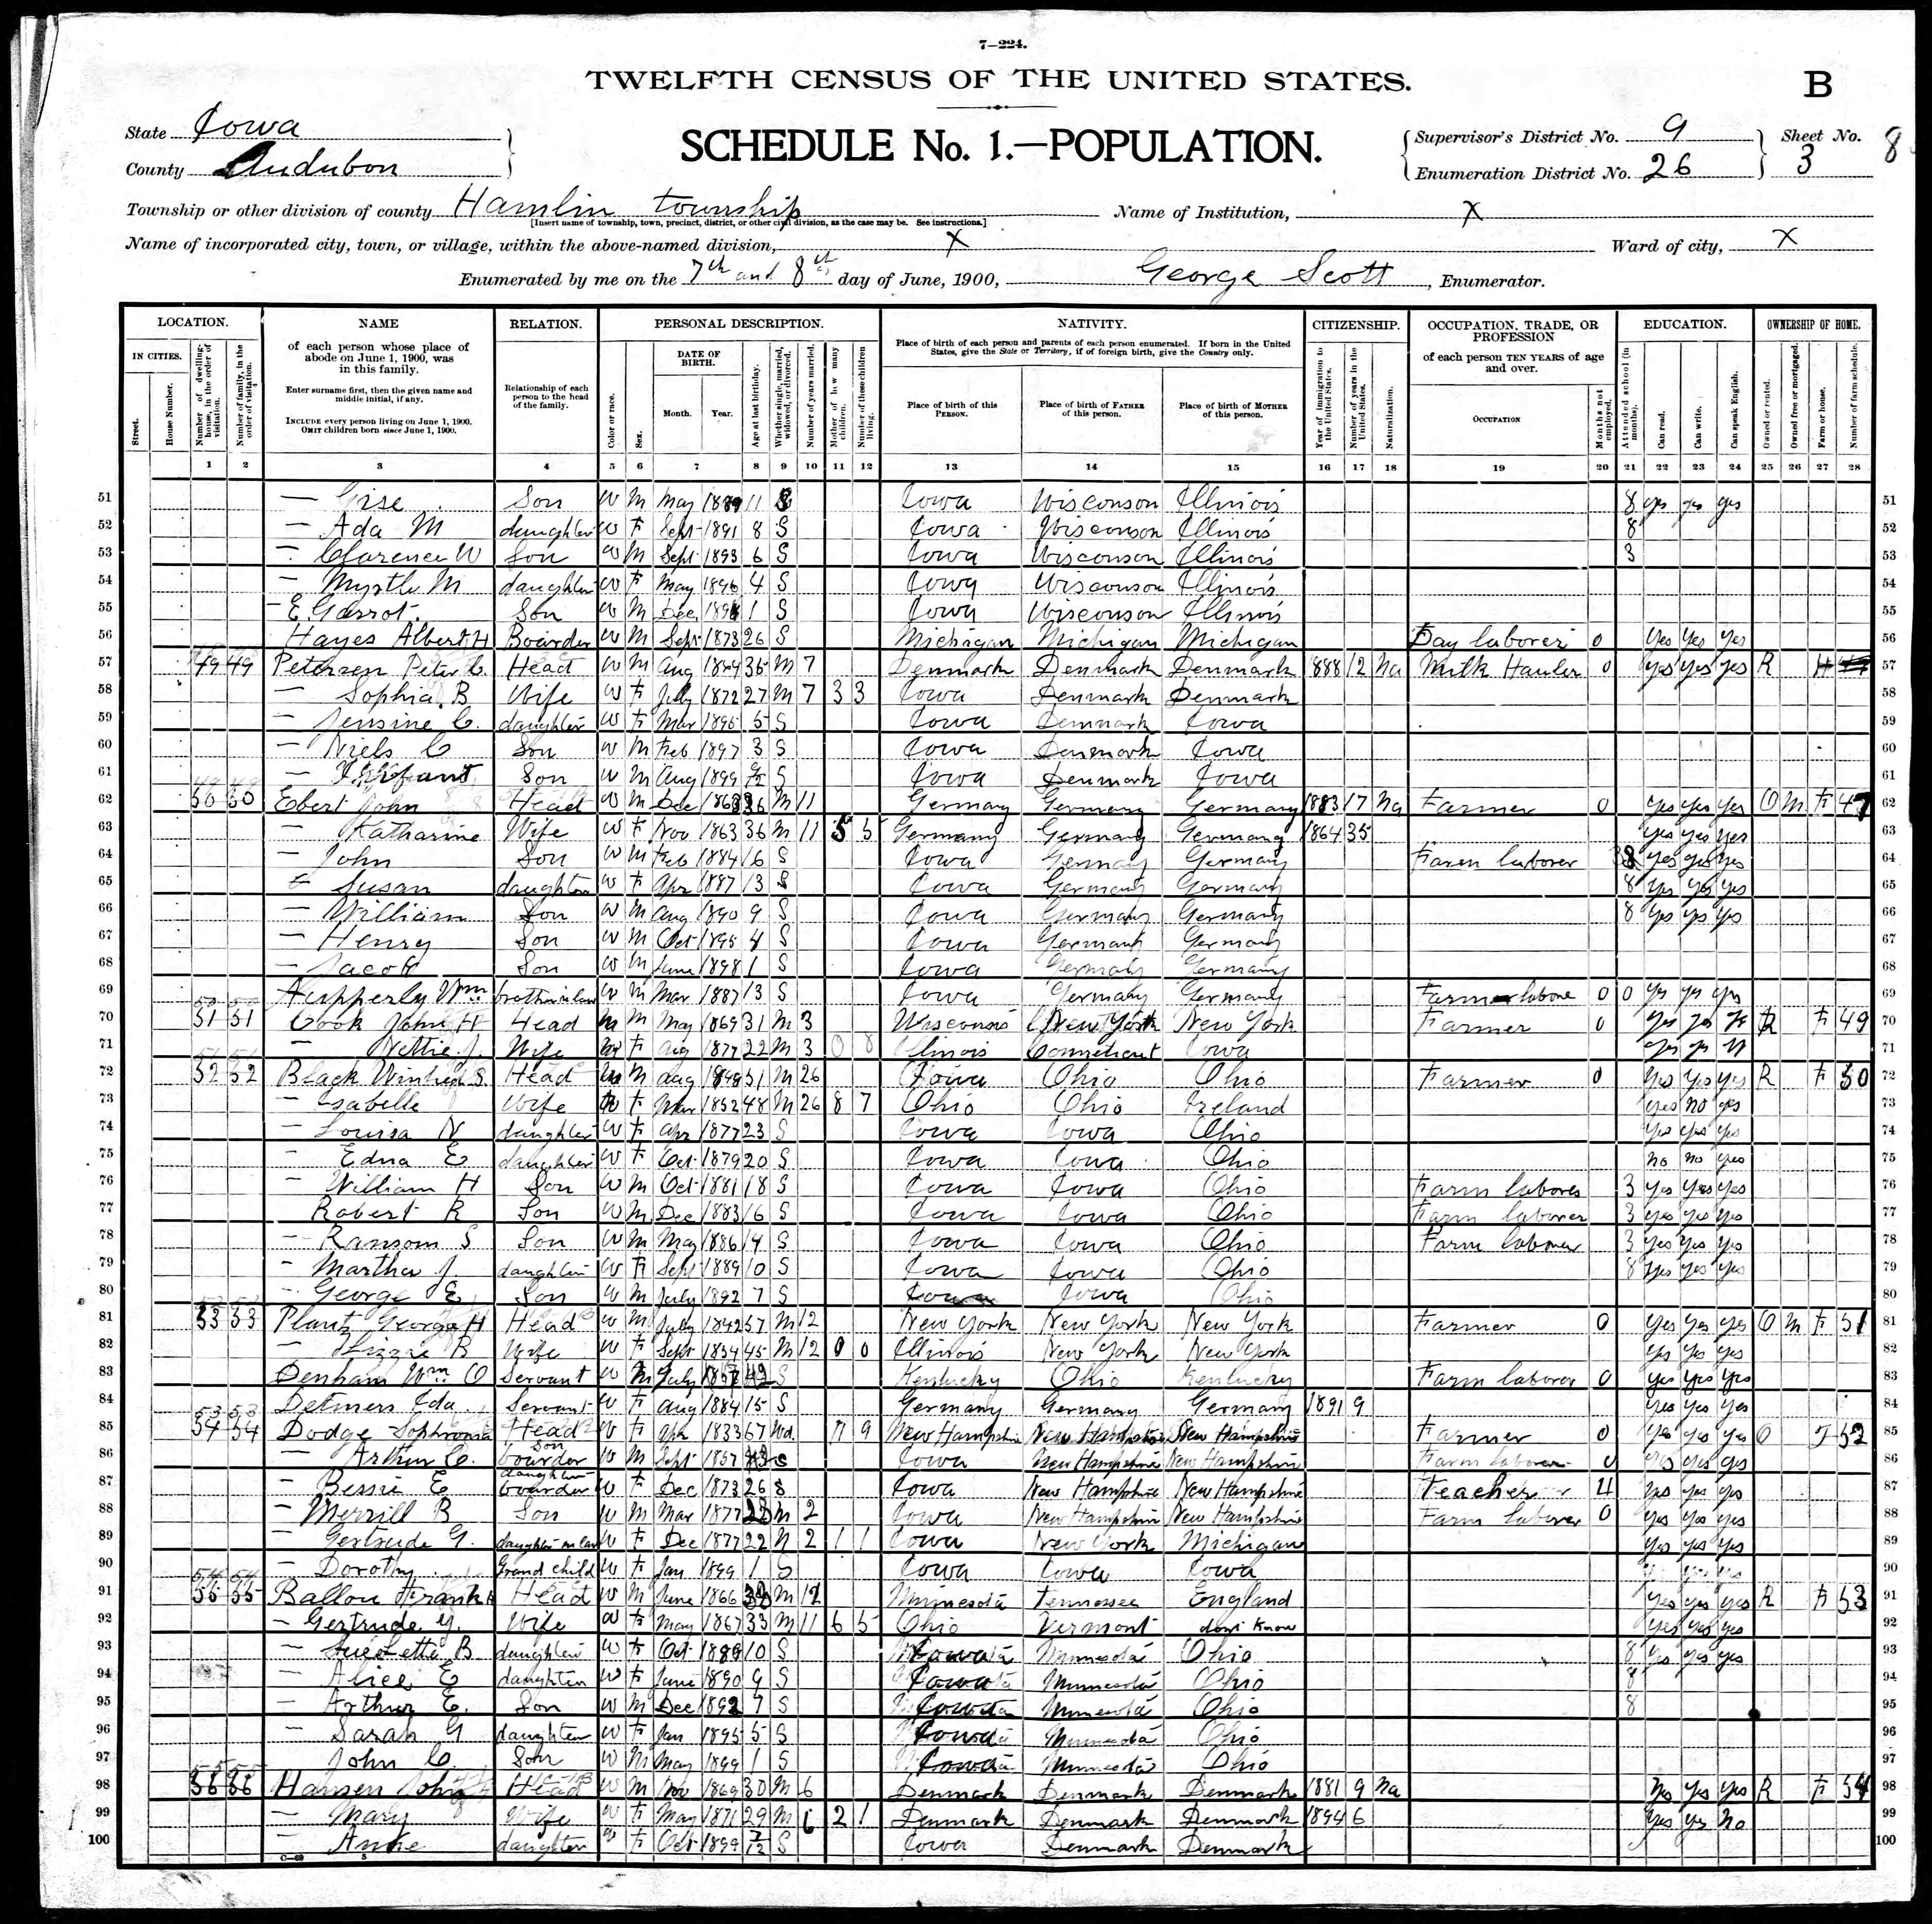 7—224.
TWELFTH CENSUS OF THE UNITED STATES.
B
State Iowa
County Audubon
SCHEDULE No. 1.—POPULATION.
Supervisor's District No. 9
Enumeration District No. 26
Sheet No.
3
8
Township or other division of county Hamlin township
[Insert name of township, town, precinct, district, or other civil division, as the case may be. See instructions.]
Name of Institution, X
Name of incorporated city, town, or village, within the above-named division, X
Ward of city, X
Enumerated by me on the 7th and 8th day of June, 1900, George Scott, Enumerator.
LOCATION. NAME RELATION. PERSONAL DESCRIPTION. NATIVITY. CITIZENSHIP. OCCUPATION, TRADE, OR PROFESSION EDUCATION. OWNERSHIP OF HOME.
IN CITIES.
Street.
House Number.
Number of dwelling-house, in the order of visitation.
Number of family, in the order of visitation.
of each person whose place of abode on June 1, 1900, was in this family.
Enter surname first, then the given name and middle initial, if any.
INCLUDE every person living on June 1, 1900.
OMIT children born since June 1, 1900.
Relationship of each person to the head of the family.
Color or race.
Sex.
DATE OF BIRTH.
Month.
Year.
Age at last birthday.
Whether single, married, widowed, or divorced.
Number of years married.
Mother of how many children.
Number of these children living.
Place of birth of each person and parents of each person enumerated. If born in the United States, give the State or Territory; if of foreign birth, give the Country only.
Place of birth of this PERSON.
Place of birth of FATHER of this person.
Place of birth of MOTHER of this person.
Year of immigration to the United States.
Number of years in the United States.
Naturalization.
of each person TEN YEARS of age and over.
OCCUPATION
Months not employed.
Attended school (in months).
Can read.
Can write.
Can speak English.
Owned or rented.
Owned free or mortgaged.
Farm or house.
Number of farm schedule.
1 2 3 4 5 6 7 8 9 10 11 12 13 14 15 16 17 18 19 20 21 22 23 24 25 26 27 28
51 — Son W M May 1889 11 S Iowa Wisconson Illinois 8 yes yes yes 51
52 — Ada M daughter W F Sept 1891 8 S Iowa Wisconson Illinois 8 52
53 — Clarence W Son W M Sept 1893 6 S Iowa Wisconson Illinois 3 53
54 — Myrtle M daughter W F May 1896 4 S Iowa Wisconson Illinois 54
55 — E. Garrot Son W M Dec 1898 1 S Iowa Wisconson Illinois 55
56 Hayes Albert H Boarder W M Sept 1873 26 S Michagan Michigan Michigan Day laborer 0 Yes Yes Yes 56
57 49 49 Petersen Peter C. Head W M Aug 1864 35 M 7 Denmark Denmark Denmark 1888 12 Na Milk Hauler 0 Yes Yes Yes R H 57
58 — Sophia B Wife W F July 1872 27 M 7 3 3 Iowa Denmark Denmark 58
59 — Jensine C. daughter W F Mar 1895 5 S Iowa Denmark Iowa 59
60 — Niels C Son W M Feb 1897 3 S Iowa Denmark Iowa 60
61 — Infant Son W M Aug 1899 S Iowa Denmark Iowa 61
62 50 50 Ebert John Head W M Dec 1863 36 M 11 Germany Germany Germany 1883 17 Na Farmer 0 Yes Yes Yes O M F 47 62
63 — Katharine Wife W F Nov 1863 36 M 11 5 5 Germany Germany Germany 1864 35 Yes Yes Yes 63
64 — John Son W M Feb 1884 16 S Iowa Germany Germany Farm laborer yes yes yes 64
65 — Susan daughter W F Apr 1887 13 S Iowa Germany Germany 8 Yes Yes Yes 65
66 — William Son W M Aug 1890 9 S Iowa Germany Germany 8 yes yes yes 66
67 — Henry Son W M Oct 1895 4 S Iowa Germany Germany 67
68 — Jacob Son W M June 1898 1 S Iowa Germany Germany 68
69 Hupperly Wm brother in law W M Mar 1887 13 S Iowa Germany Germany Farm labore 0 0 yes yes yes 69
70 51 51 Cook John H Head M May 1869 31 M 3 Wisconsis New York New York Farmer 0 yes yes R F 49 70
71 — Nettie J. Wife F Aug 1877 22 M 3 0 Illinois Conneticut Iowa yes yes 71
72 52 52 Black S. Head M Aug 1848 51 M 26 Iowa Ohio Ohio Farmer 0 Yes Yes Yes R F 50 72
73 — Isabelle Wife W F Mar 1852 48 M 26 8 7 Ohio Ohio Ireland yes no yes 73
74 — Louisa N daughter W F Apr 1877 23 S Iowa Iowa Ohio Yes Yes Yes 74
75 — Edna E daughter W F Oct 1879 20 S Iowa Iowa Ohio no no yes 75
76 — William H Son W M Oct 1881 18 S Iowa Iowa Ohio Farm laborer 3 Yes Yes Yes 76
77 Robert R Son W M Dec 1883 16 S Iowa Iowa Ohio Farm laborer 3 yes yes yes 77
78 — Ransom S Son W M May 1886 14 S Iowa Iowa Ohio Farm laborer 3 Yes Yes Yes 78
79 — Martha J daughter W F Sept 1889 10 S Iowa Iowa Ohio 8 Yes Yes Yes 79
80 — George E Son W M July 1892 7 S Iowa Iowa Ohio 80
81 53 53 Plantz George H Head W M July 1842 57 M 12 New York New York New York Farmer 0 Yes Yes Yes O M F 51 81
82 — Lizzie B Wife W F Sept 1854 45 M 12 0 0 Illinois New York New York yes yes yes 82
83 Denham Wm O Servant W M July S Kentucky Ohio Kentucky Farm laborer 0 yes yes yes 83
84 Detmers Ida Servant W F Aug 1884 15 S Germany Germany Germany 1891 9 yes yes yes 84
85 54 54 Dodge Sophronia Head W F Apr 1833 67 Wd 9 New Hampshire New Hampshire New Hampshire Farmer 0 Yes Yes Yes O F 52 85
86 — Arthur C. son boarder W M Sept 1857 S Iowa New Hampshire New Hampshire Farm laborer 0 yes yes yes 86
87 — Bessie E daughter boarder W F Dec 1873 26 S Iowa New Hampshire New Hampshire Teacher 4 yes yes yes 87
88 — Merrill B Son W M Mar 1877 M 2 Iowa New Hampshire New Hampshire Farm laborer 0 yes yes yes 88
89 — Gertrude G. daughter in law W F Dec 1877 22 M 2 1 1 Iowa New York Michigan yes yes yes 89
90 — Dorothy Grand child W F Jan 1899 1 S Iowa Iowa Iowa 90
91 55 55 Ballou Frank Head W M June 1866 M Minnesota Tennessee England yes yes yes R F 53 91
92 — Gertrude Y. Wife W F May 1867 33 M 11 6 5 Ohio Vermont dont know yes yes yes 92
93 — B daughter W F Oct 1889 10 S Iowa Minnesota Ohio 8 Yes Yes Yes 93
94 — Alice E daughter W F June 1890 9 S Iowa Minnesota Ohio 8 94
95 — Arthur E. Son W M Dec 1892 7 S Iowa Minnesota Ohio 8 95
96 — Sarah G daughter W F Jan 1895 5 S Iowa Minnesota Ohio 96
97 — John C. Son W M May 1899 1 S Iowa Minnesota Ohio 97
98 56 56 Hansen John Head W M Nov 1869 30 M 6 Denmark Denmark Denmark 1881 9 Na Yes Yes R F 54 98
99 — Mary Wife W F May 1871 29 M 6 2 1 Denmark Denmark Denmark 1894 6 Yes Yes No 99
100 — Annie daughter W F Oct 1899 7/12 S Iowa Denmark Denmark 100